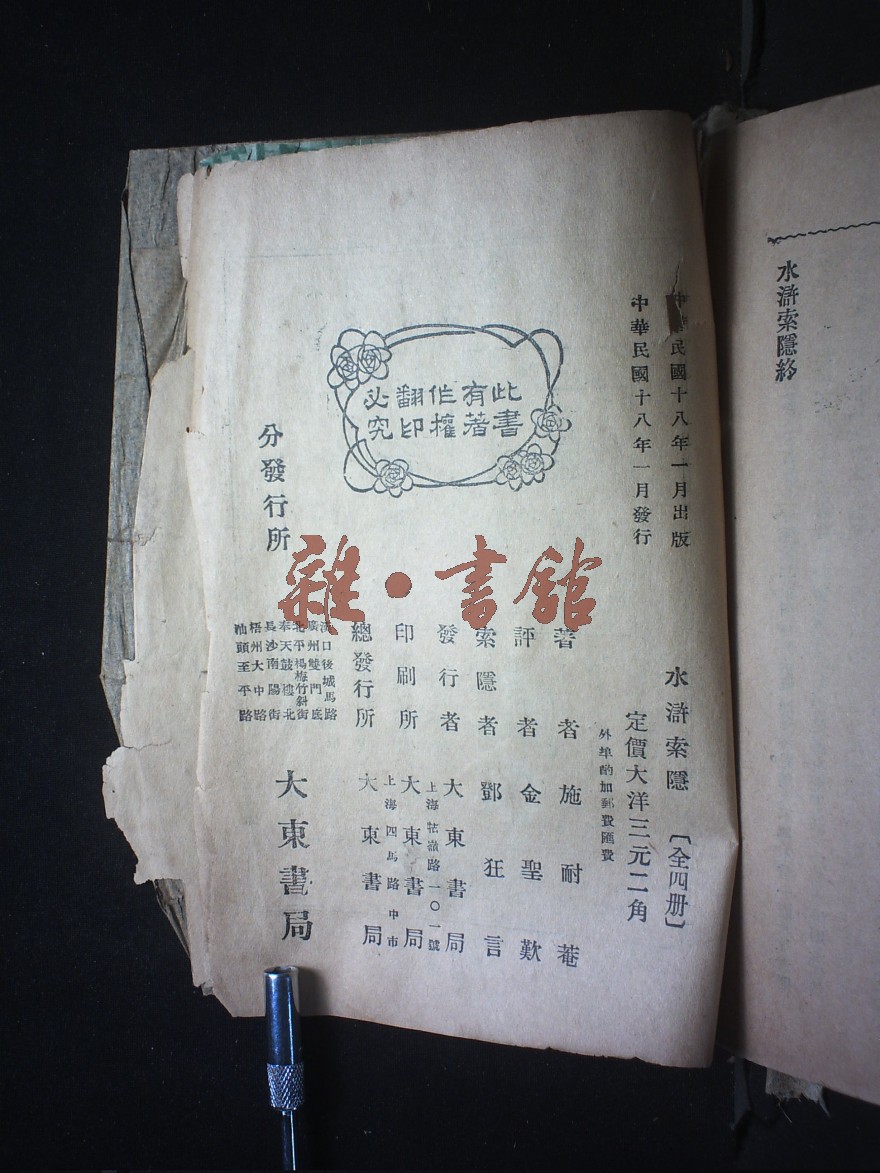 水滸索隱終
中華民國十八年一月出版
中華民國十八年一月發行
此書
有著
作權
翻印
必究
水滸索隱〔全四册〕
定價大洋三元二角
外埠酌加郵費匯費
著者 施耐菴
評者 金聖歎
索隱者 鄧狂言
發行者 大東書局
上海牯嶺路一〇一號
印刷所 大東書局
上海四馬路中市
總發行所 大東書局
分發行所
漢口後城馬路
廣州雙門底
北平楊梅竹斜街
奉天鼓樓北
長沙南陽街
梧州大中路
汕頭至平路
大東書局
雜·書館